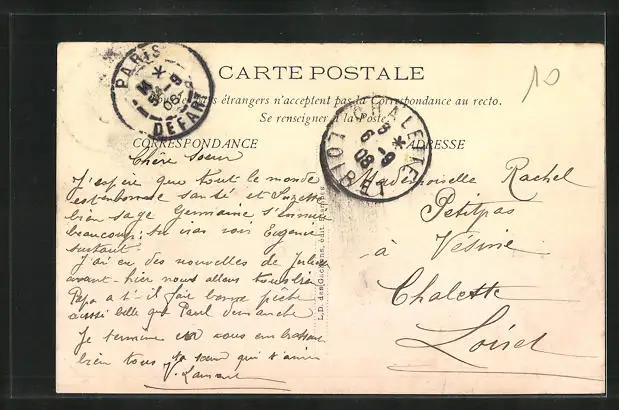 CARTE POSTALE
Tous les pays étrangers n'acceptent pas la Correspondance au recto.
Se renseigner à la Poste
CORRESPONDANCE
ADRESSE
PARIS
DEPART
CHALETTE
LOIRET
8 -9
6
08
10
Chère Sœur
J'espère que tout le monde
est en bonne santé et Suzette
bien sage Germaine s'ennuie
beaucoup; tu iras voir Eugenie
surtout.
J'ai eu des nouvelles de Julien
avant-hier nous allons tous bien
Papa a t-il fait bonne pêche
aussi belle que Paul dimanche
Je termine en vous embrassant
bien tous ta sœur qui t'aime
Mademoiselle Rachel
Petitpas
à Vésine
Chalette
Loiret
L.D. des